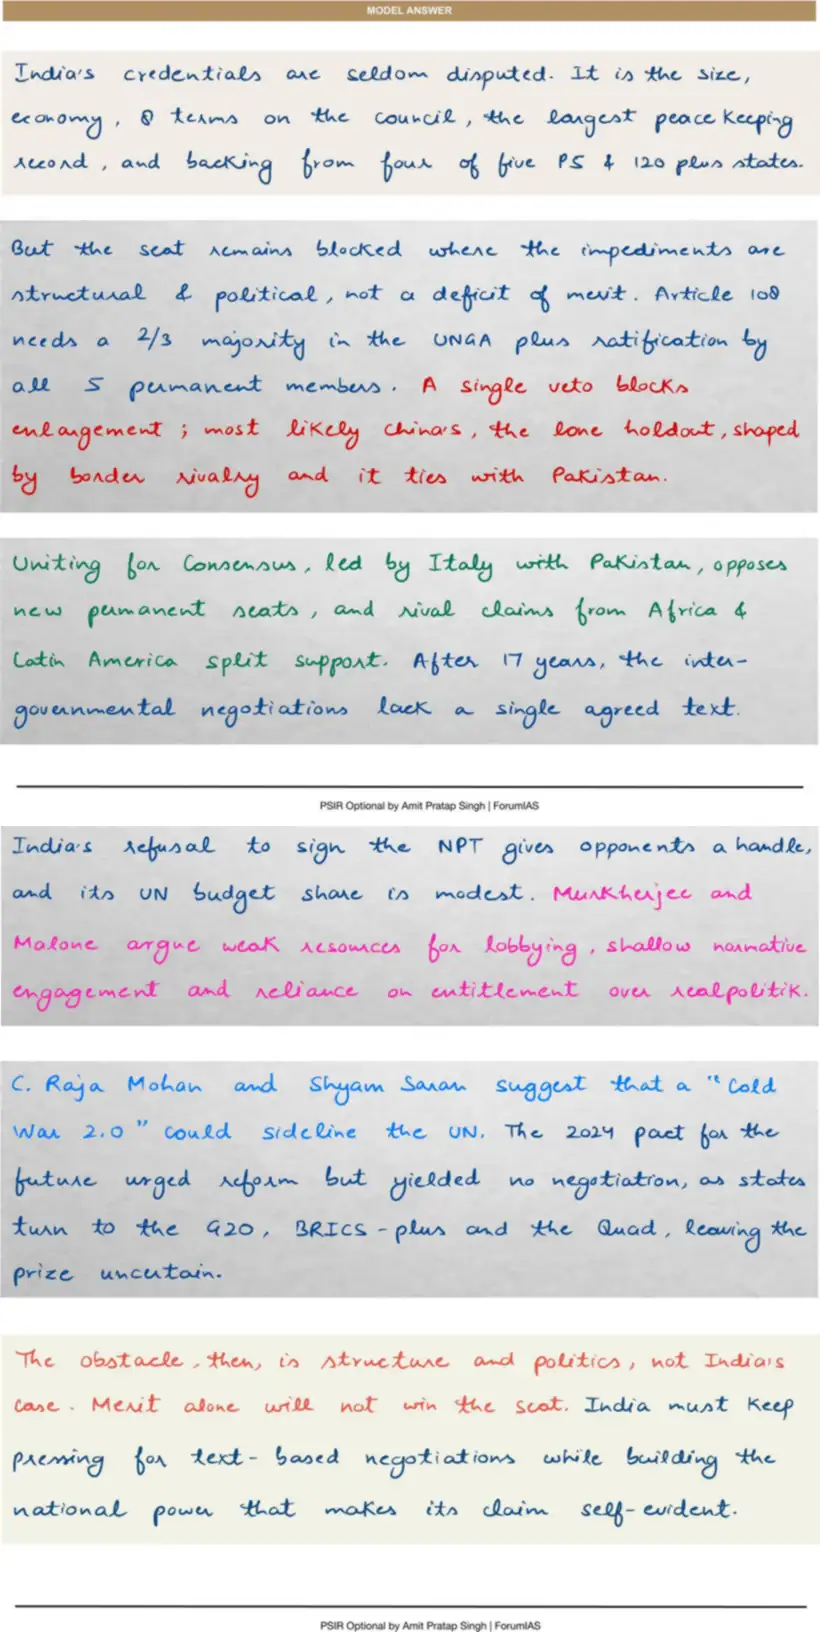 MODEL ANSWER
India's credentials are seldom disputed. It is the size,
economy, 8 terms on the council, the largest peace keeping
record, and backing from four of five P5 & 120 plus states.
But the seat remains blocked where the impediments are
structural & political, not a deficit of merit. Article 108
needs a 2/3 majority in the UNGA plus ratification by
all 5 permanent members. A single veto blocks
enlargement; most likely china's, the lone holdout, shaped
by border rivalry and it ties with Pakistan.
Uniting for Consensus, led by Italy with Pakistan, opposes
new permanent seats, and rival claims from Africa &
Latin America split support. After 17 years, the inter-
governmental negotiations lack a single agreed text.
PSIR Optional by Amit Pratap Singh | ForumIAS
India's refusal to sign the NPT gives opponents a handle,
and its UN budget share is modest. Murkherjee and
Malone argue weak resources for lobbying, shallow normative
engagement and reliance on entitlement over realpolitik.
C. Raja Mohan and Shyam Saran suggest that a "Cold
War 2.0" could sideline the UN. The 2024 pact for the
future urged reform but yielded no negotiation, as states
turn to the G20, BRICS-plus and the Quad, leaving the
prize uncertain.
The obstacle, then, is structure and politics, not India's
case. Merit alone will not win the seat. India must keep
pressing for text-based negotiations while building the
national power that makes its claim self-evident.
PSIR Optional by Amit Pratap Singh | ForumIAS